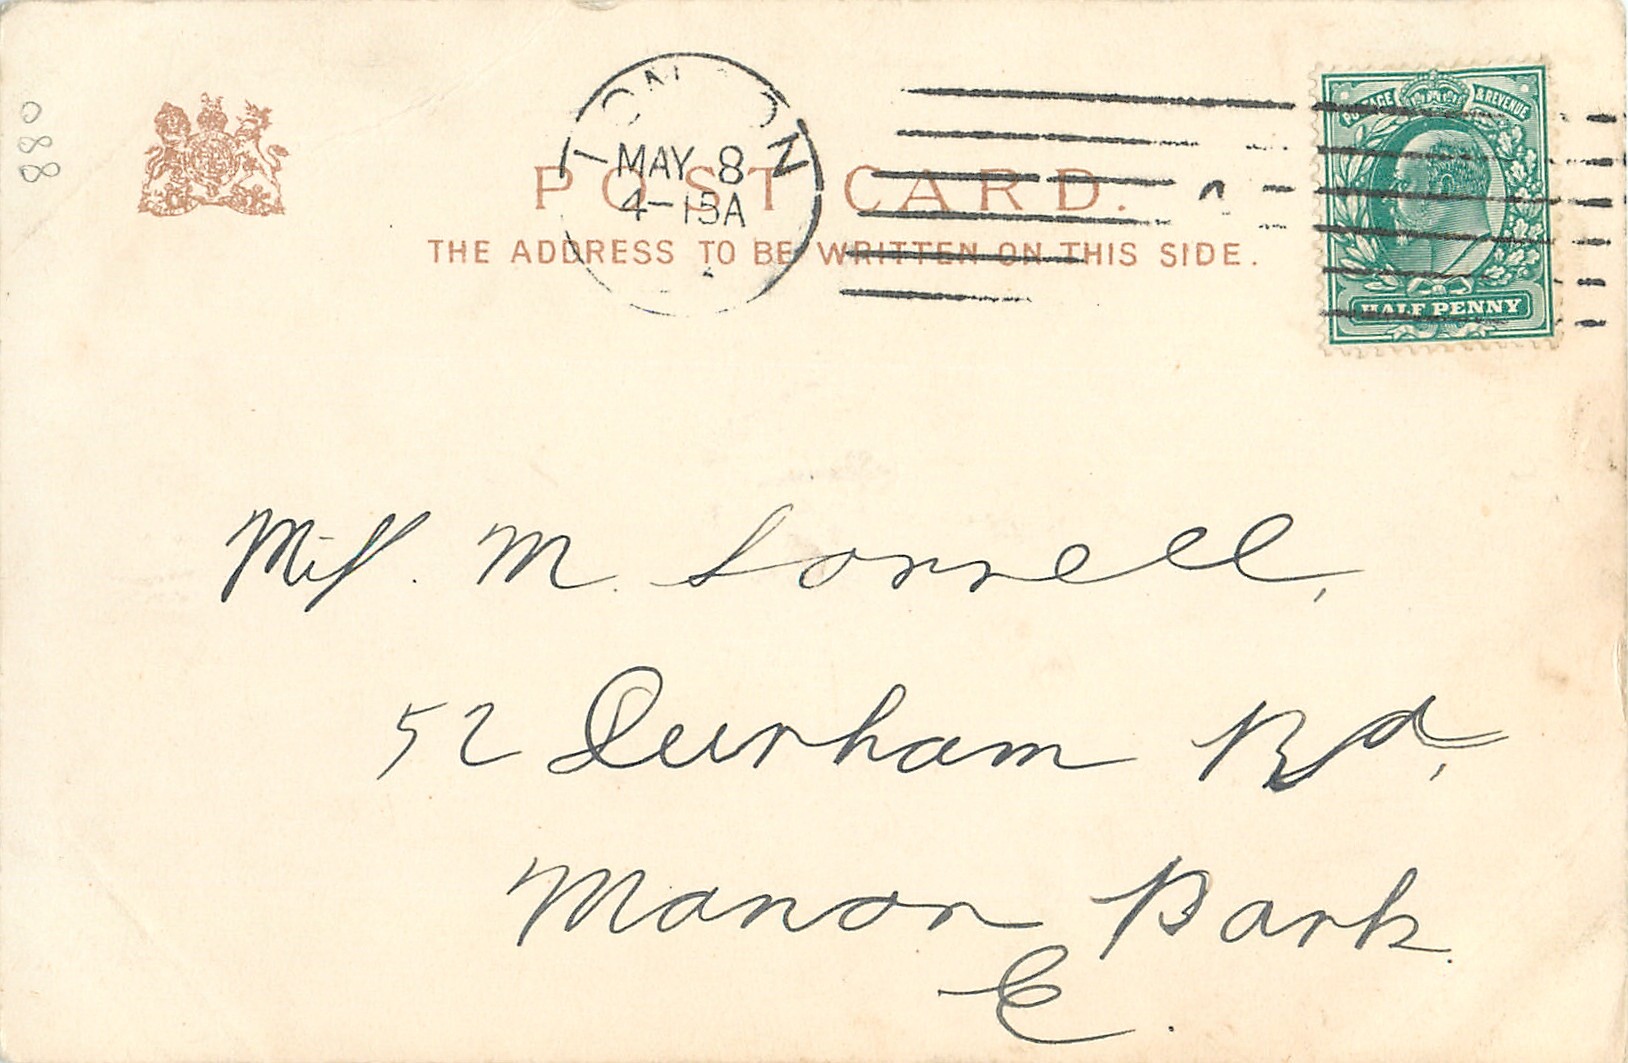 088
LONDON
MAY 8
4-15A
POSTAGE & REVENUE
HALF PENNY
POST CARD.
THE ADDRESS TO BE WRITTEN ON THIS SIDE.
Miss. M. Sorrell,
52 Durham Rd,
Manor Park.
E.